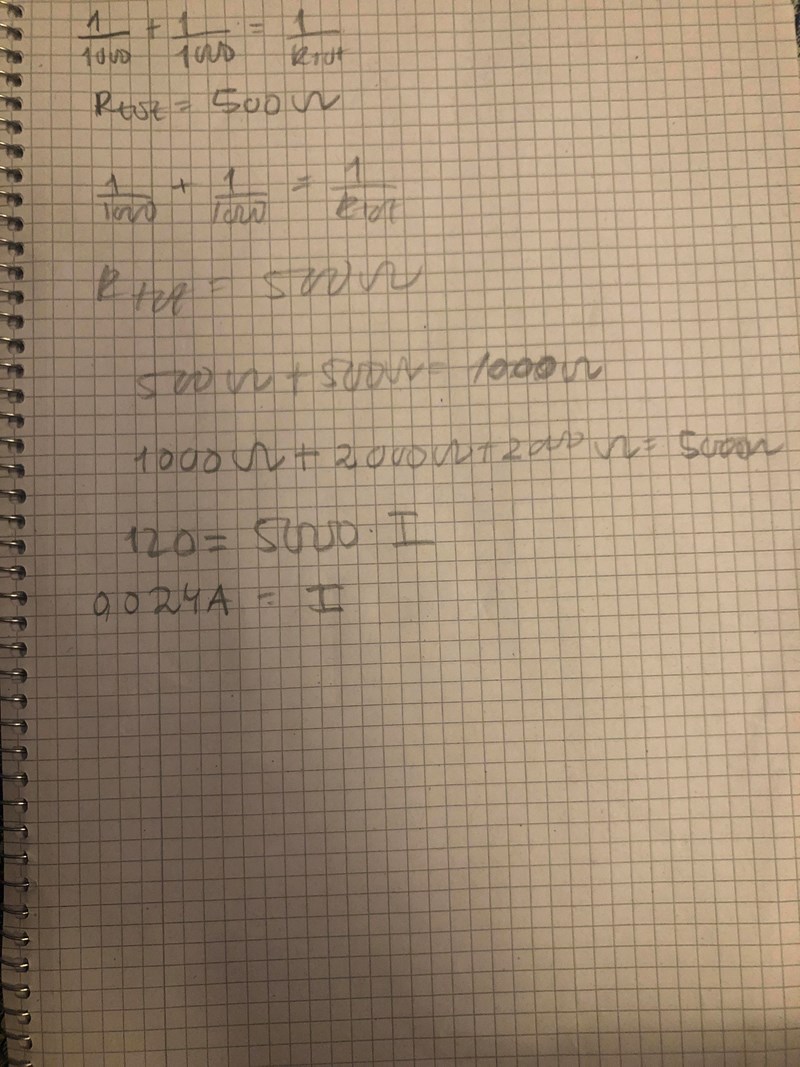 1/1000 + 1/1000 = 1/Rtot
Rtot = 500Ω
1/1000 + 1/1000 = 1/Rtot
Rtot = 500Ω
500Ω + 500Ω = 1000Ω
1000Ω + 2000Ω + 2000Ω = 5000Ω
120 = 5000 · I
0,024A = I